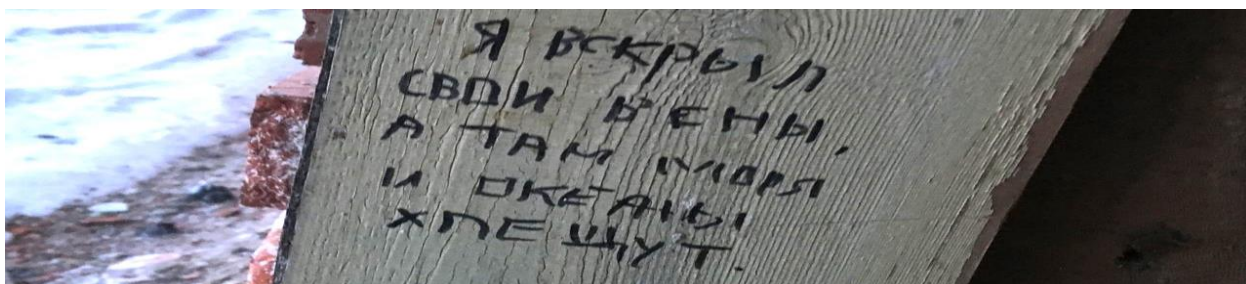 Я ВСКРЫЛ
СВОИ ВЕНЫ,
А ТАМ МОРЯ
И ОКЕАНЫ
ХЛЕЩУТ.